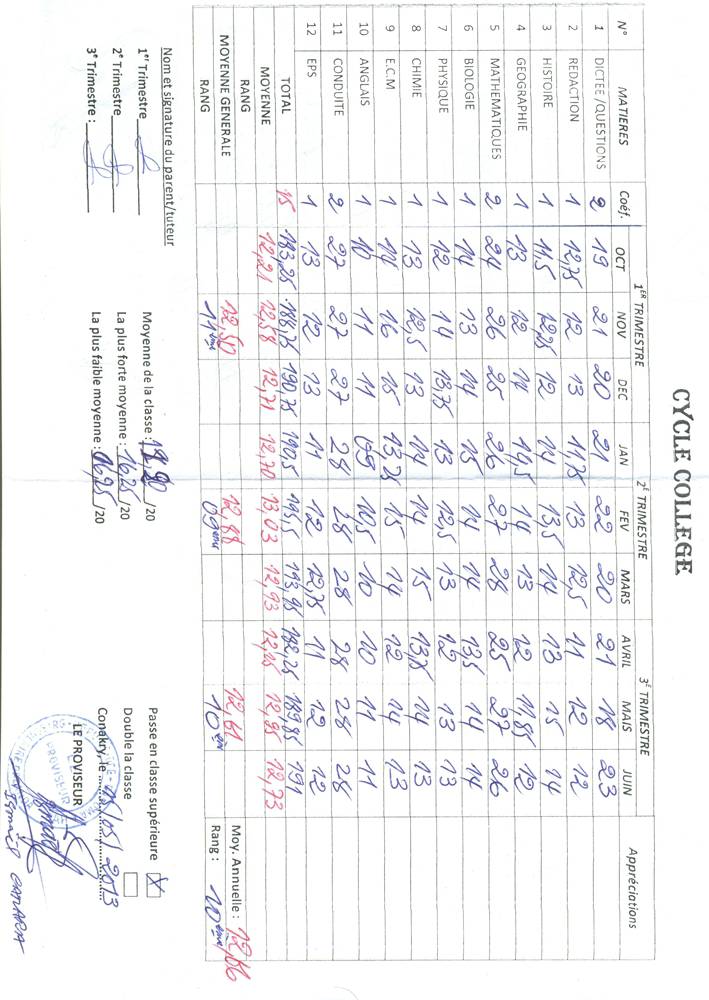 CYCLE COLLEGE
N° MATIERES Coéf. 1ER TRIMESTRE 2E TRIMESTRE 3E TRIMESTRE Appréciations
OCT NOV DEC JAN FEV MARS AVRIL MAIS JUIN
1 DICTEE /QUESTIONS 2 19 21 20 21 22 20 21 18 23
2 REDACTION 1 12,75 12 13 11,75 13 12,5 11 12 12
3 HISTOIRE 1 11,5 12,25 12 14 13,5 14 13 15 14
4 GEOGRAPHIE 1 13 12 14 14,5 14 13 12 11,85 12
5 MATHEMATIQUES 2 24 26 25 26 27 28 25 27 26
6 BIOLOGIE 1 14 13 14 15 14 14 13,5 14 14
7 PHYSIQUE 1 12 14 13,75 13 12,5 13 12 13 13
8 CHIMIE 1 13 12,5 13 14 14 15 13,75 14 13
9 E.C.M 1 14 16 15 13,75 15 14 12 14 13
10 ANGLAIS 1 10 11 11 09 10,5 10 10 11 11
11 CONDUITE 2 27 27 27 28 28 28 28 28 28
12 EPS 1 13 12 13 11 12 12,75 11 12 12
TOTAL 15 183,25 188,75 190,75 190,5 195,5 193,95 182,25 189,85 191
MOYENNE 12,21 12,58 12,71 12,70 13,03 12,93 12,73
RANG
MOYENNE GENERALE 12,50 12,88 12,61 Moy. Annuelle : 12,66
RANG 11ème 09ème 10ème Rang : 10ème
Nom et signature du parent/tuteur
1er Trimestre
2e Trimestre
3e Trimestre :
Moyenne de la classe : /20
La plus forte moyenne : 16,25 /20
La plus faible moyenne : 06,25 /20
Passe en classe supérieure X
Double la classe
Conakry, le 05/2013
LE PROVISEUR
PROVISEUR
CAMARA